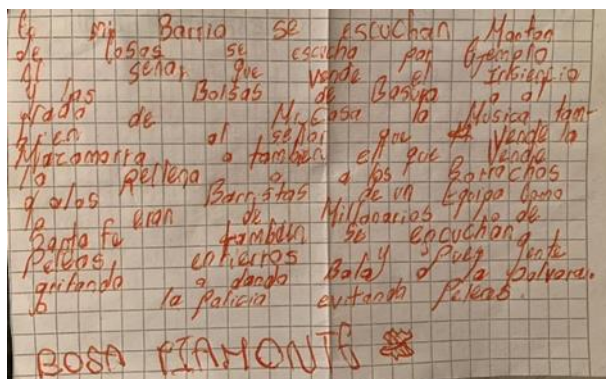 En mi Barrio se escuchan Monton
de Cosas se escucha por Ejemplo
al señor que vende el Insienpio
y las Bolsas de Basura o a
lado de Mi Casa la Música tam-
bien al señor que vende la
Mazamorra o tambien el que Vende
la Rellena o a los Borrachos
o alos Barristas de un Equipo Como
lo eran de Millonarios lo de
Santa fe tambien se escuchan
Peleas entierros y Pues jente
gritando o dando Bala o la polvora.
o la policia evitando Peleas.
BOSA PIAMONTE